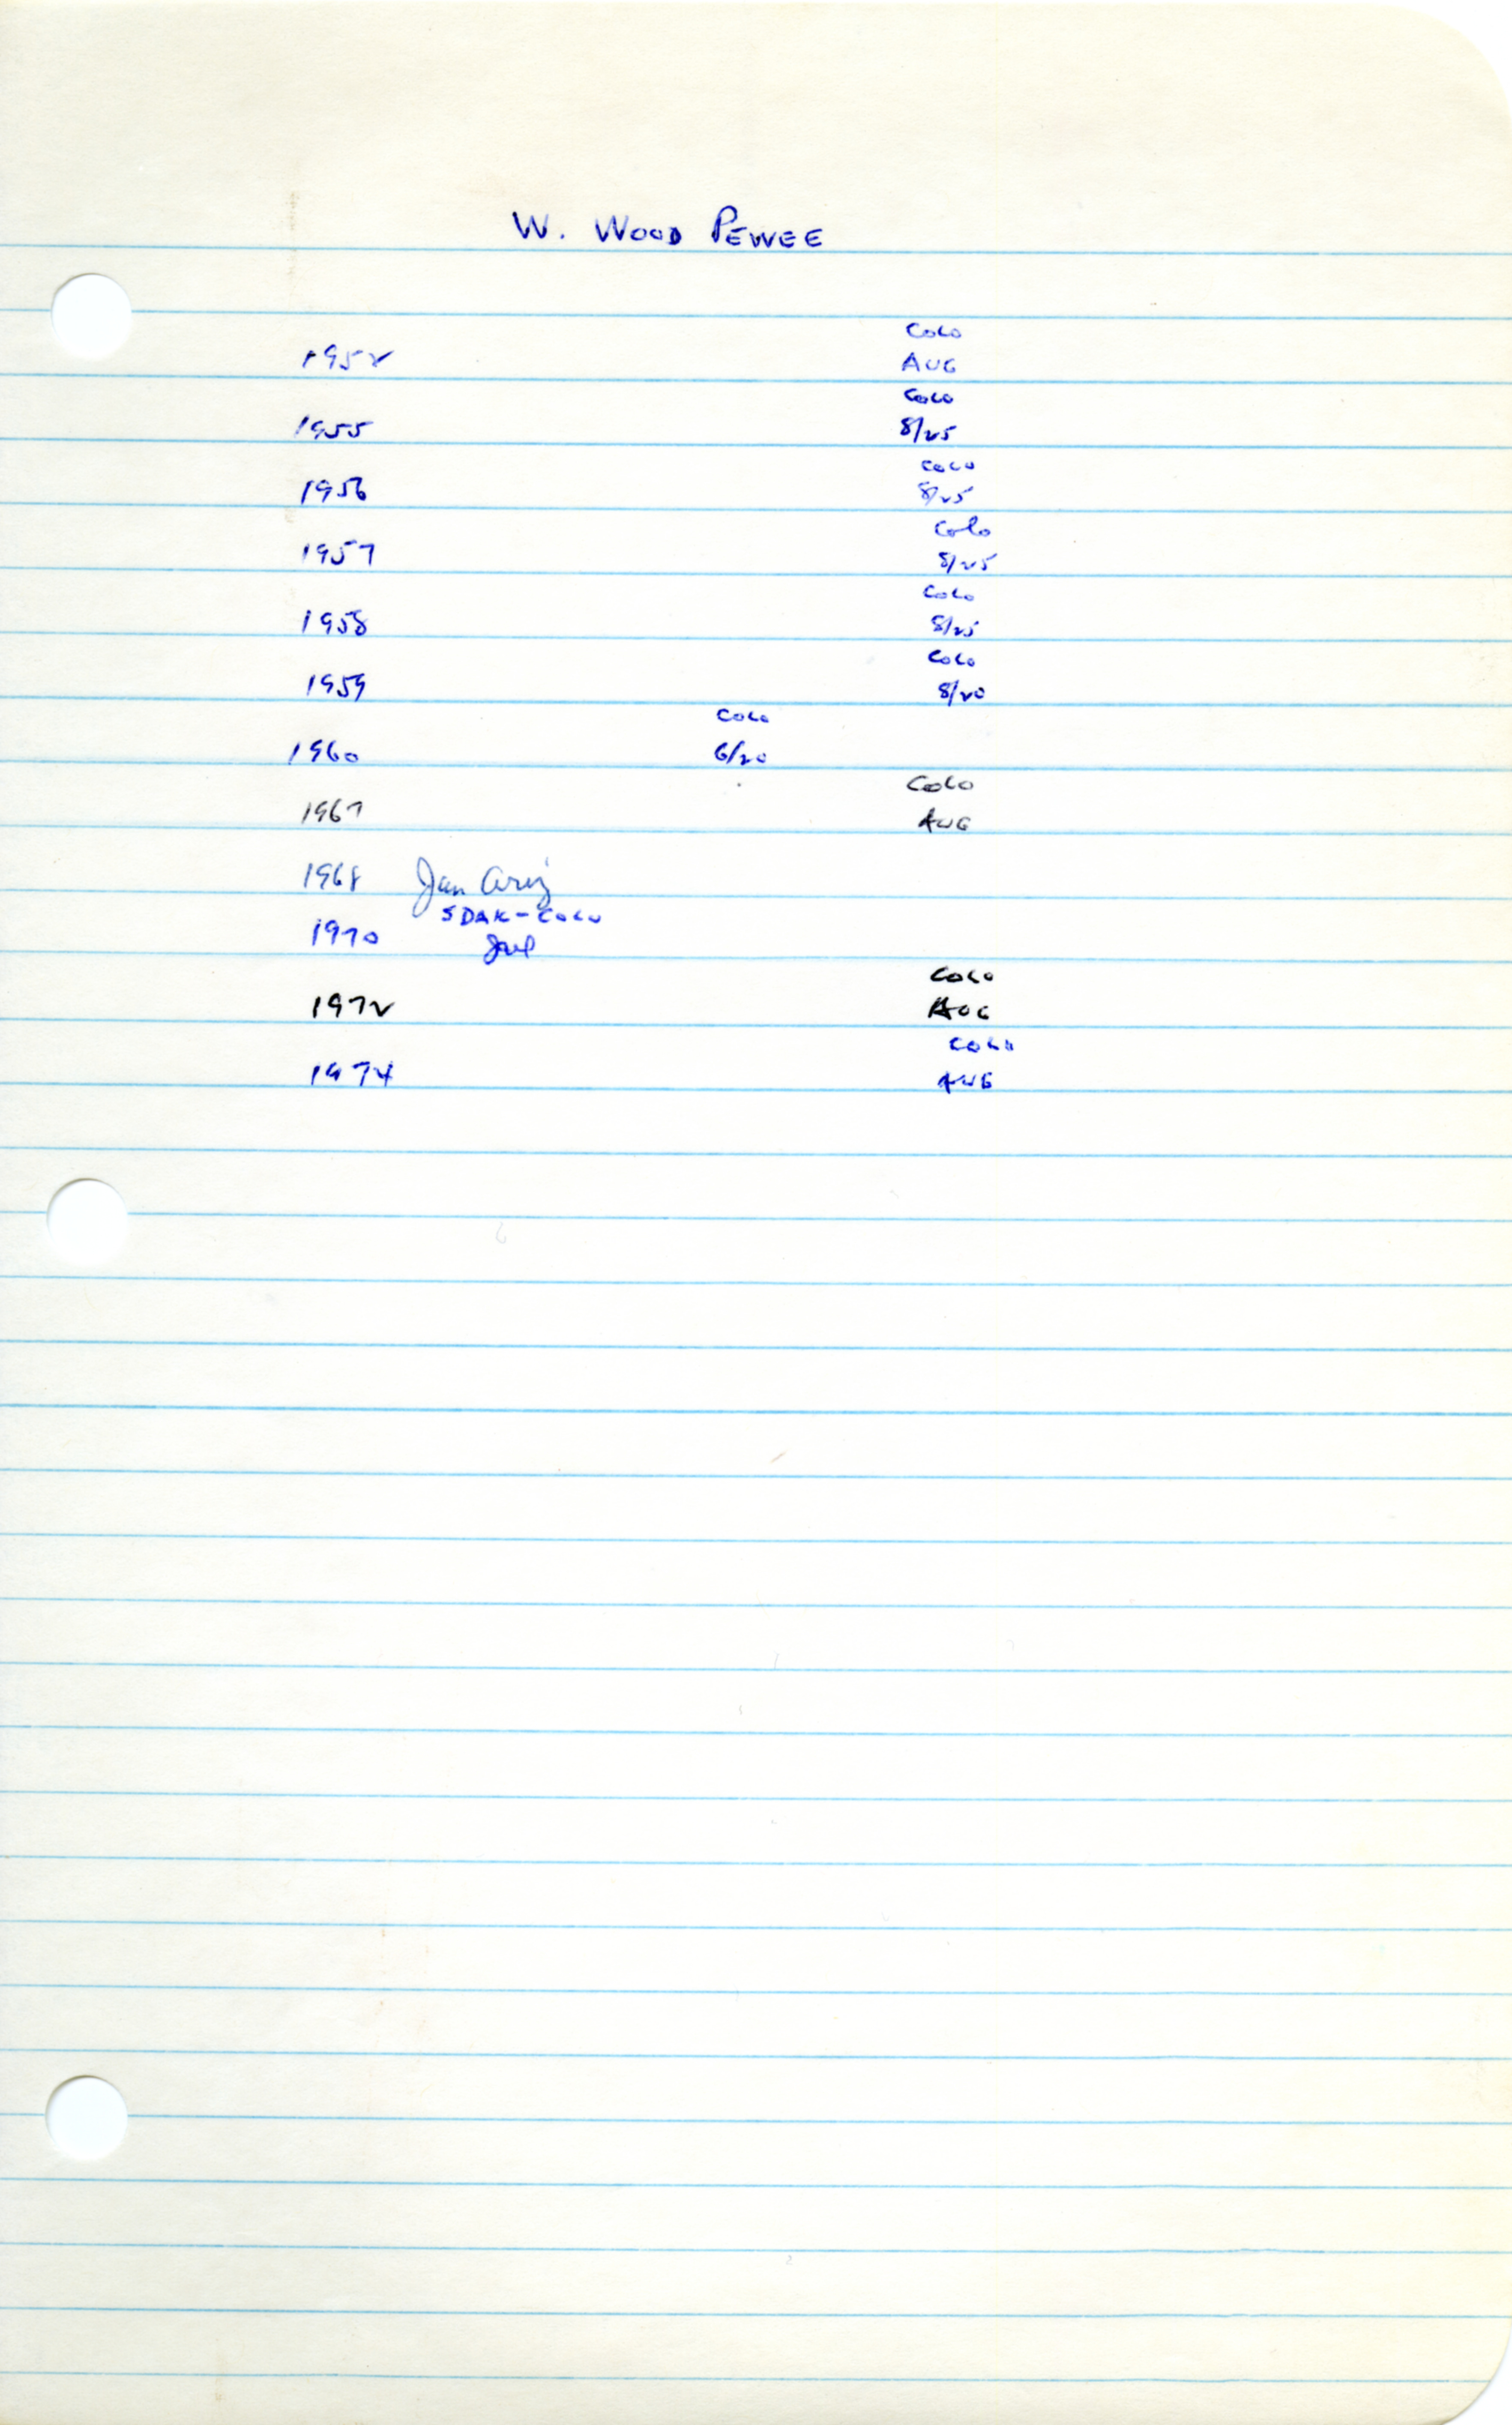 W. WOOD PEWEE
COLO
1952 AUG
COLO
1955 8/25
COLO
1956 8/25
Colo
1957 8/25
COLO
1958 8/25
COLO
1959 8/20
COLO
1960 6/20
COLO
1967 AUG
1968 Jan Ariz
SDAK-COLO
1970
COLO
1972 AUG
COLO
1974 AUG